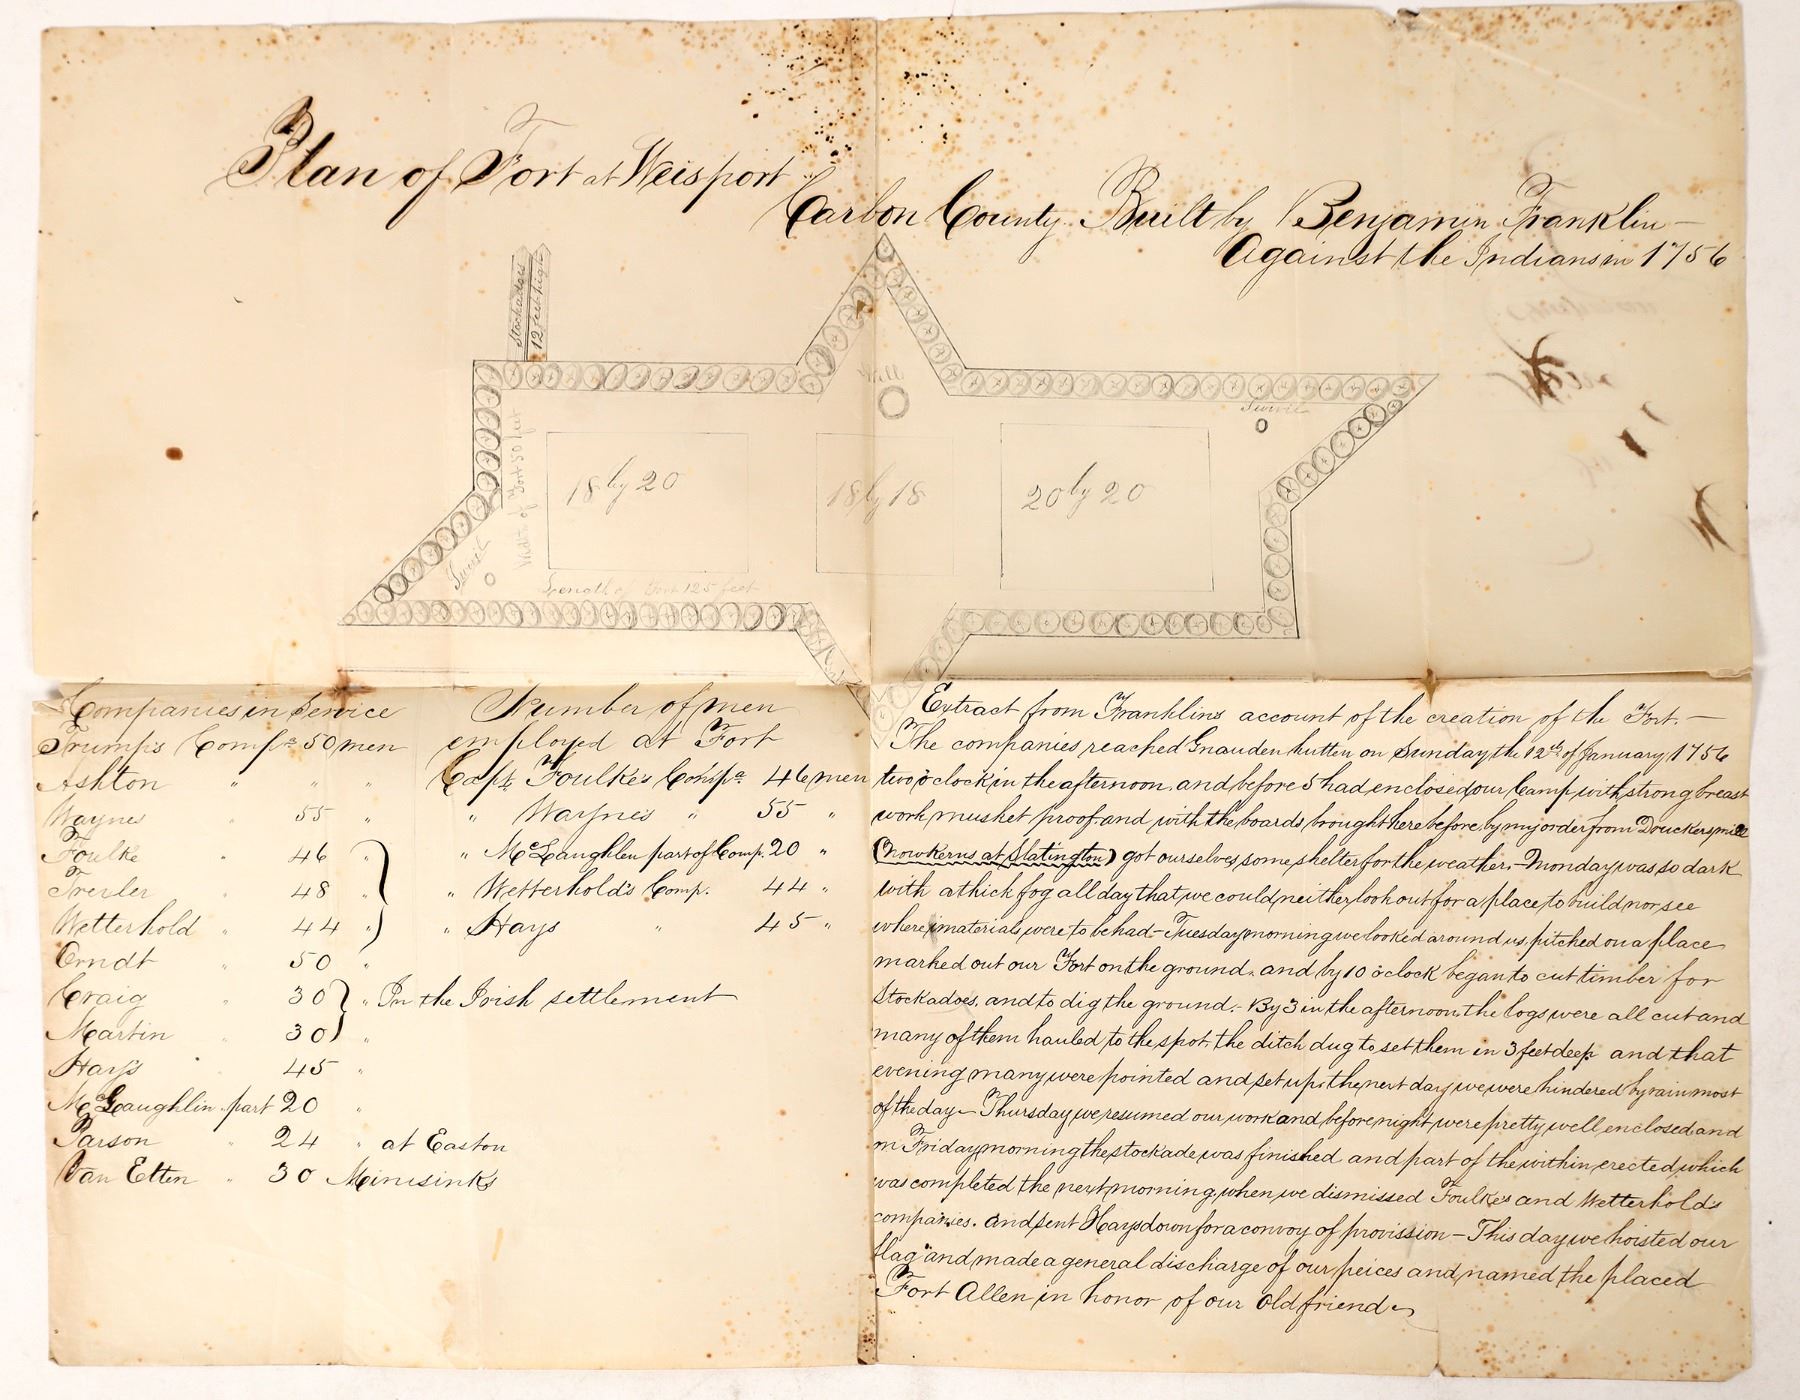 Plan of Fort at Weisport
Carbon County Built by Benjamin Franklin—
Against the Indians in 1756
Stockadoes
12 feet high
Well
Swivel
Width of Fort 50 feet
18 by 20
18 by 18
20 by 20
Swivel
Length of Fort 125 feet
Companies in Service
Trump's Compa 50 men
Ashton " " "
Wayne " 55 "
Foulke " 46 "
Trexler " 48 "
Wetterhold " 44 "
Orndt " 50 "
Craig " 30 } " In the Irish settlement
Martin " 30 "
Hays " 45 "
McLaughlin part 20 "
Parson " 24 " at Easton
Van Etten " 30 Minisinks
Number of men
employed at Fort
Capt. Foulke's Compa. 46 men
" Wayne's " 55 "
" McLaughlen part of Comp. 20 "
" Wetterhold's Comp. 44 "
" Hays " 45 "
Extract from Franklins account of the creation of the Fort.—
The companies reached Gnauden hutten on Sunday the 12th of January 1756
two o'clock in the afternoon, and before 5 had enclosed our Camp with strong breast
work musket proof and with the boards brought here before by my order from Drucker's mill
(now Kerns at Slatington) got ourselves some shelter for the weather.—Monday was so dark
with a thick fog all day that we could neither look out for a place to build nor see
where materials were to be had—Tuesday morning we looked around us, pitched on a place
marked out our Fort on the ground, and by 10 o'clock began to cut timber for
Stockadoes, and to dig the ground.—By 3 in the afternoon the logs were all cut and
many of them hauled to the spot, the ditch dug to set them in 3 feet deep and that
evening many were pointed and set up, the next day we were hindered by rain most
of the day—Thursday we resumed our work and before night were pretty well enclosed and
on Friday morning the stockade was finished and part of the within erected which
was completed the next morning, when we dismissed Foulke's and Wetterhold's
companies. and sent Hays down for a convoy of provission—This day we hoisted our
flag and made a general discharge of our peices and named the placed
Fort Allen in honor of our old friend